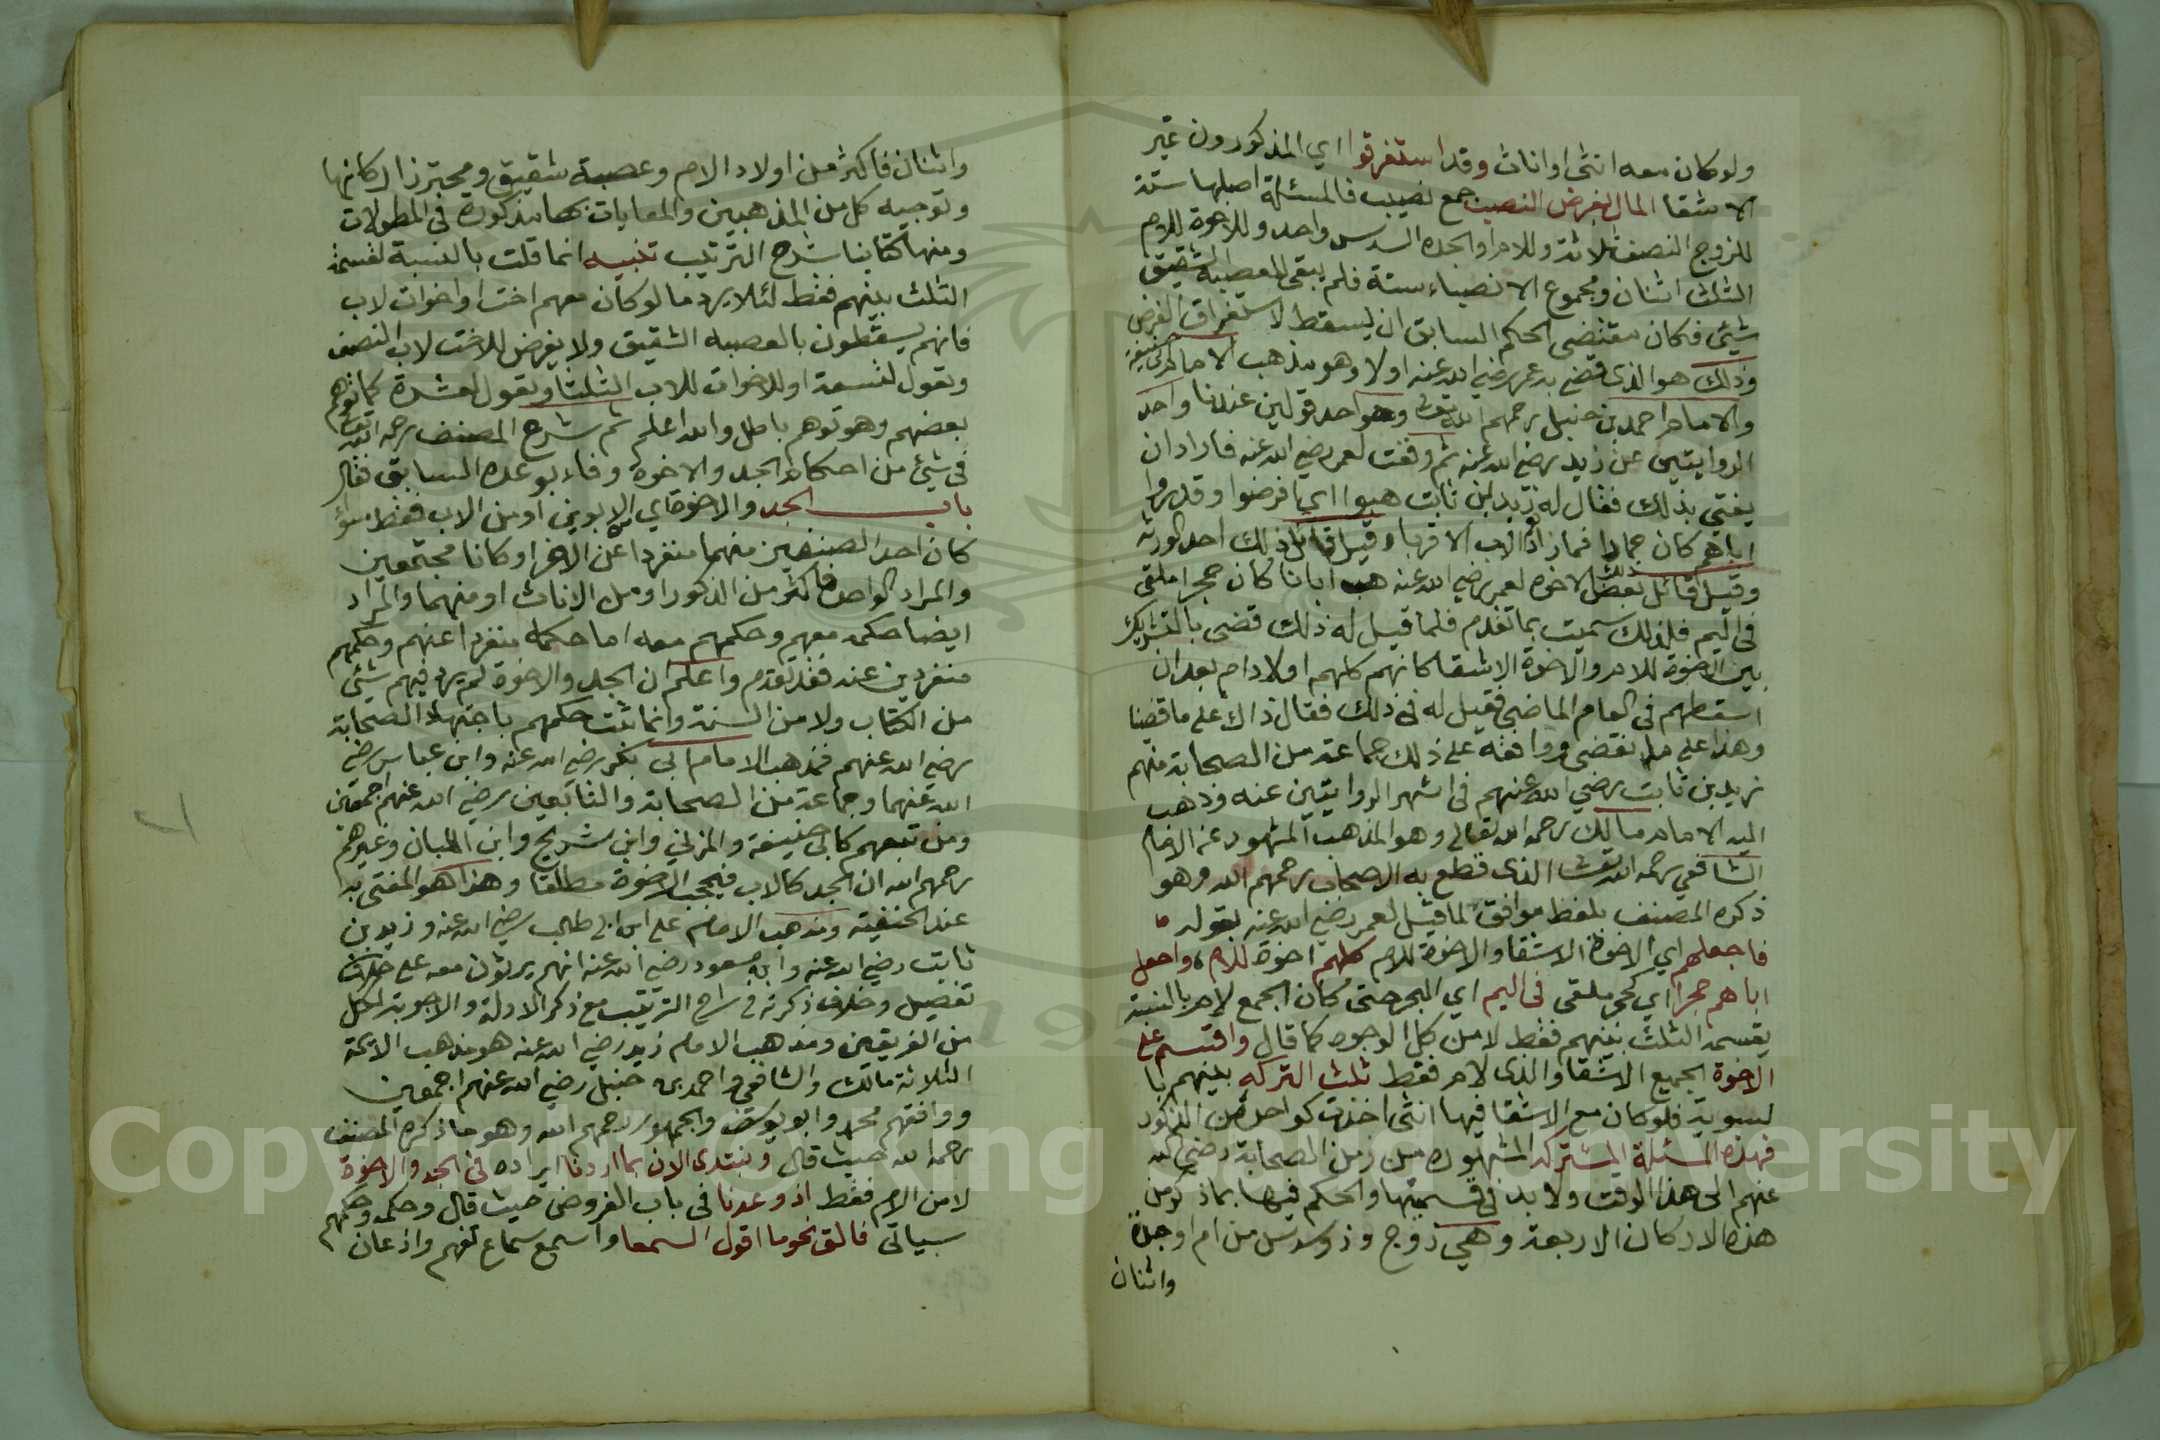 ولو كان معه انثى او اناث وقد استغرقوا اي المذكورون غير
الاشقا المال بفرض النصب جمع نصيب فالمسئلة اصلها ستة
للزوج النصف ثلاثة وللام او الجدة السدس واحد وللاخوة للام
الثلث اثنان ومجموع الانصباء ستة فلم يبقى للعصبة الشقيق
شيئ فكان مقتضى الحكم السابق ان يسقط لاستغراق الفرض
وذلك هوالذى قضى به عمر رضي الله عنه اولا وهو مذهب الامام ابى حنيفة
والامام احمد بن حنبل رحمهم الله تعالى وهو احد قولين عندنا واحد
الروايتين عن زيد رضي الله عنه ثم وقعت لعمر رضي الله عنه فاراد ان
يفتي بذلك فقال له زيد ابن ثابت هبوا اي افرضوا وقدروا
اباهم كان حمارا فما زاد الاب الا قربا وقيل قائل ذلك احد الورثة
وقيل قائل ذلك بعض الاخوة لعمر رضي الله عنه هب ابانا كان حجرا ملقى
في اليم فلذلك سميت بما تقدم فلما قيل له ذلك قضى بالتشريك
بين الاخوة للام والاخوة الاشقا كانهم كلهم اولاد ام بعد ان
اسقطهم في العام الماضي فقيل له في ذلك فقال ذاك على ما قضينا
وهذا على ما نقضى ووافقه على ذلك جماعة من الصحابة منهم
زيد بن ثابت رضي الله عنهم في اشهر الروايتين عنه وذهب
اليه الامام مالك رحمه الله تعالى وهو المذهب المشهور عن الامام
الشافعي رحمه الله تعالى الذى قطع به الاصحاب رحمهم الله وهو
ذكره المصنف بلفظ موافق لما قيل لعمر رضي الله عنه بقوله
فاجعلهم اي الاخوة الاشقا والاخوة للام كلهم اخوة للام واجعل
اباهم حجرا اي كحجر ملقى في اليم اي البحر حتى كان الجمع لام بالنسبة
لقسمة الثلث بينهم فقط لا من كل الوجوه كما قال واقسم على
الاخوة الجميع الاشقا والذى لام فقط ثلث التركه بينهم با
لسوية فلو كان مع الاشقا فيها انثى اخذت كواحد من الذكور
فهذه المسئلة المشتركه المشهوره من زمن الصحابة رضي الله
عنهم الى هذا الوقت ولا بد في قسمتها والحكم فيها بما ذكر من
هذه الاركان الاربعة وهي زوج وذو سدس من ام او جدة
واثنان
واثنان فاكثر من اولاد الام وعصبة شقيق ومحترز اركانها
وتوجيه كل من المذهبين والمعايات بها مذكورة في المطولات
ومنها كتابنا شرح الترتيب تنبيه انما قلت بالنسبة لقسمة
الثلث بينهم فقط لئلا يرد ما لو كان معهم اخت او اخوات لاب
فانهم يسقطون بالعصبه الشقيق ولا يفرض للاخت لاب النصف
وتعول لتسعة او للاخوات للاب الثلثا وتعول لعشرة كما توهم
بعضهم وهو توهم باطل والله اعلم ثم شرع المصنف رحمه الله تعالى
في شيئ من احكام الجد والاخوة وفاء بوعده السابق فقال
باب الجد والاخوة اي الابوين او من الاب فقط سواء
كان احد الصنفين منهما منفردا عن الاخر او كانا مجتمعين
والمراد الواحد فاكثر من الذكور او من الاناث او منهما والمراد
ايضا حكمه معهم وحكمهم معه اما حكمه منفردا عنهم وحكمهم
منفردين عنه فقد تقدم واعلم ان الجد والاخوة لم يرد فيهم شيئ
من الكتاب ولا من السنة وانما ثبت حكمهم باجتهاد الصحابة
رضي الله عنهم فمذهب الامام ابي بكر رضي الله عنه وابن عباس رضي
الله عنهما وجماعة من الصحابة والتابعين رضي الله عنهم اجمعين
ومن تبعهم كابى حنيفة والمزني وابن شريح وابن اللبان وغيرهم
رحمهم الله ان الجد كالاب فيحجب الاخوة مطلقا وهذا هو المفتى به
عند الحنفية ومذهب الامام على ابن ابى طالب رضي الله عنه وزيد بن
ثابت رضي الله عنه وابن مسعود رضي الله عنه انهم يرثون معه على خلاف
تفصيل وخلاف ذكرته في شرح الترتيب مع ذكر الادلة والاجوبة لكل
من الفريقين ومذهب الامام زيد رضي الله عنه هو مذهب الائمة
الثلاثة مالك والشافعي واحمد بن حنبل رضي الله عنهم اجمعين
ووافقهم محمد وابو يوسف والجمهور رحمهم الله وهو ما ذكره المصنف
رحمه الله حيث قال ونبتدى الان بما اردنا ايراده في الجد والاخوة
لا من الام فقط اذ وعدنا في باب الفروض حيث قال وحكمه وحكمهم
سياتى فالق نحو ما اقول السمعا واسمع سماع تفهم واذعان